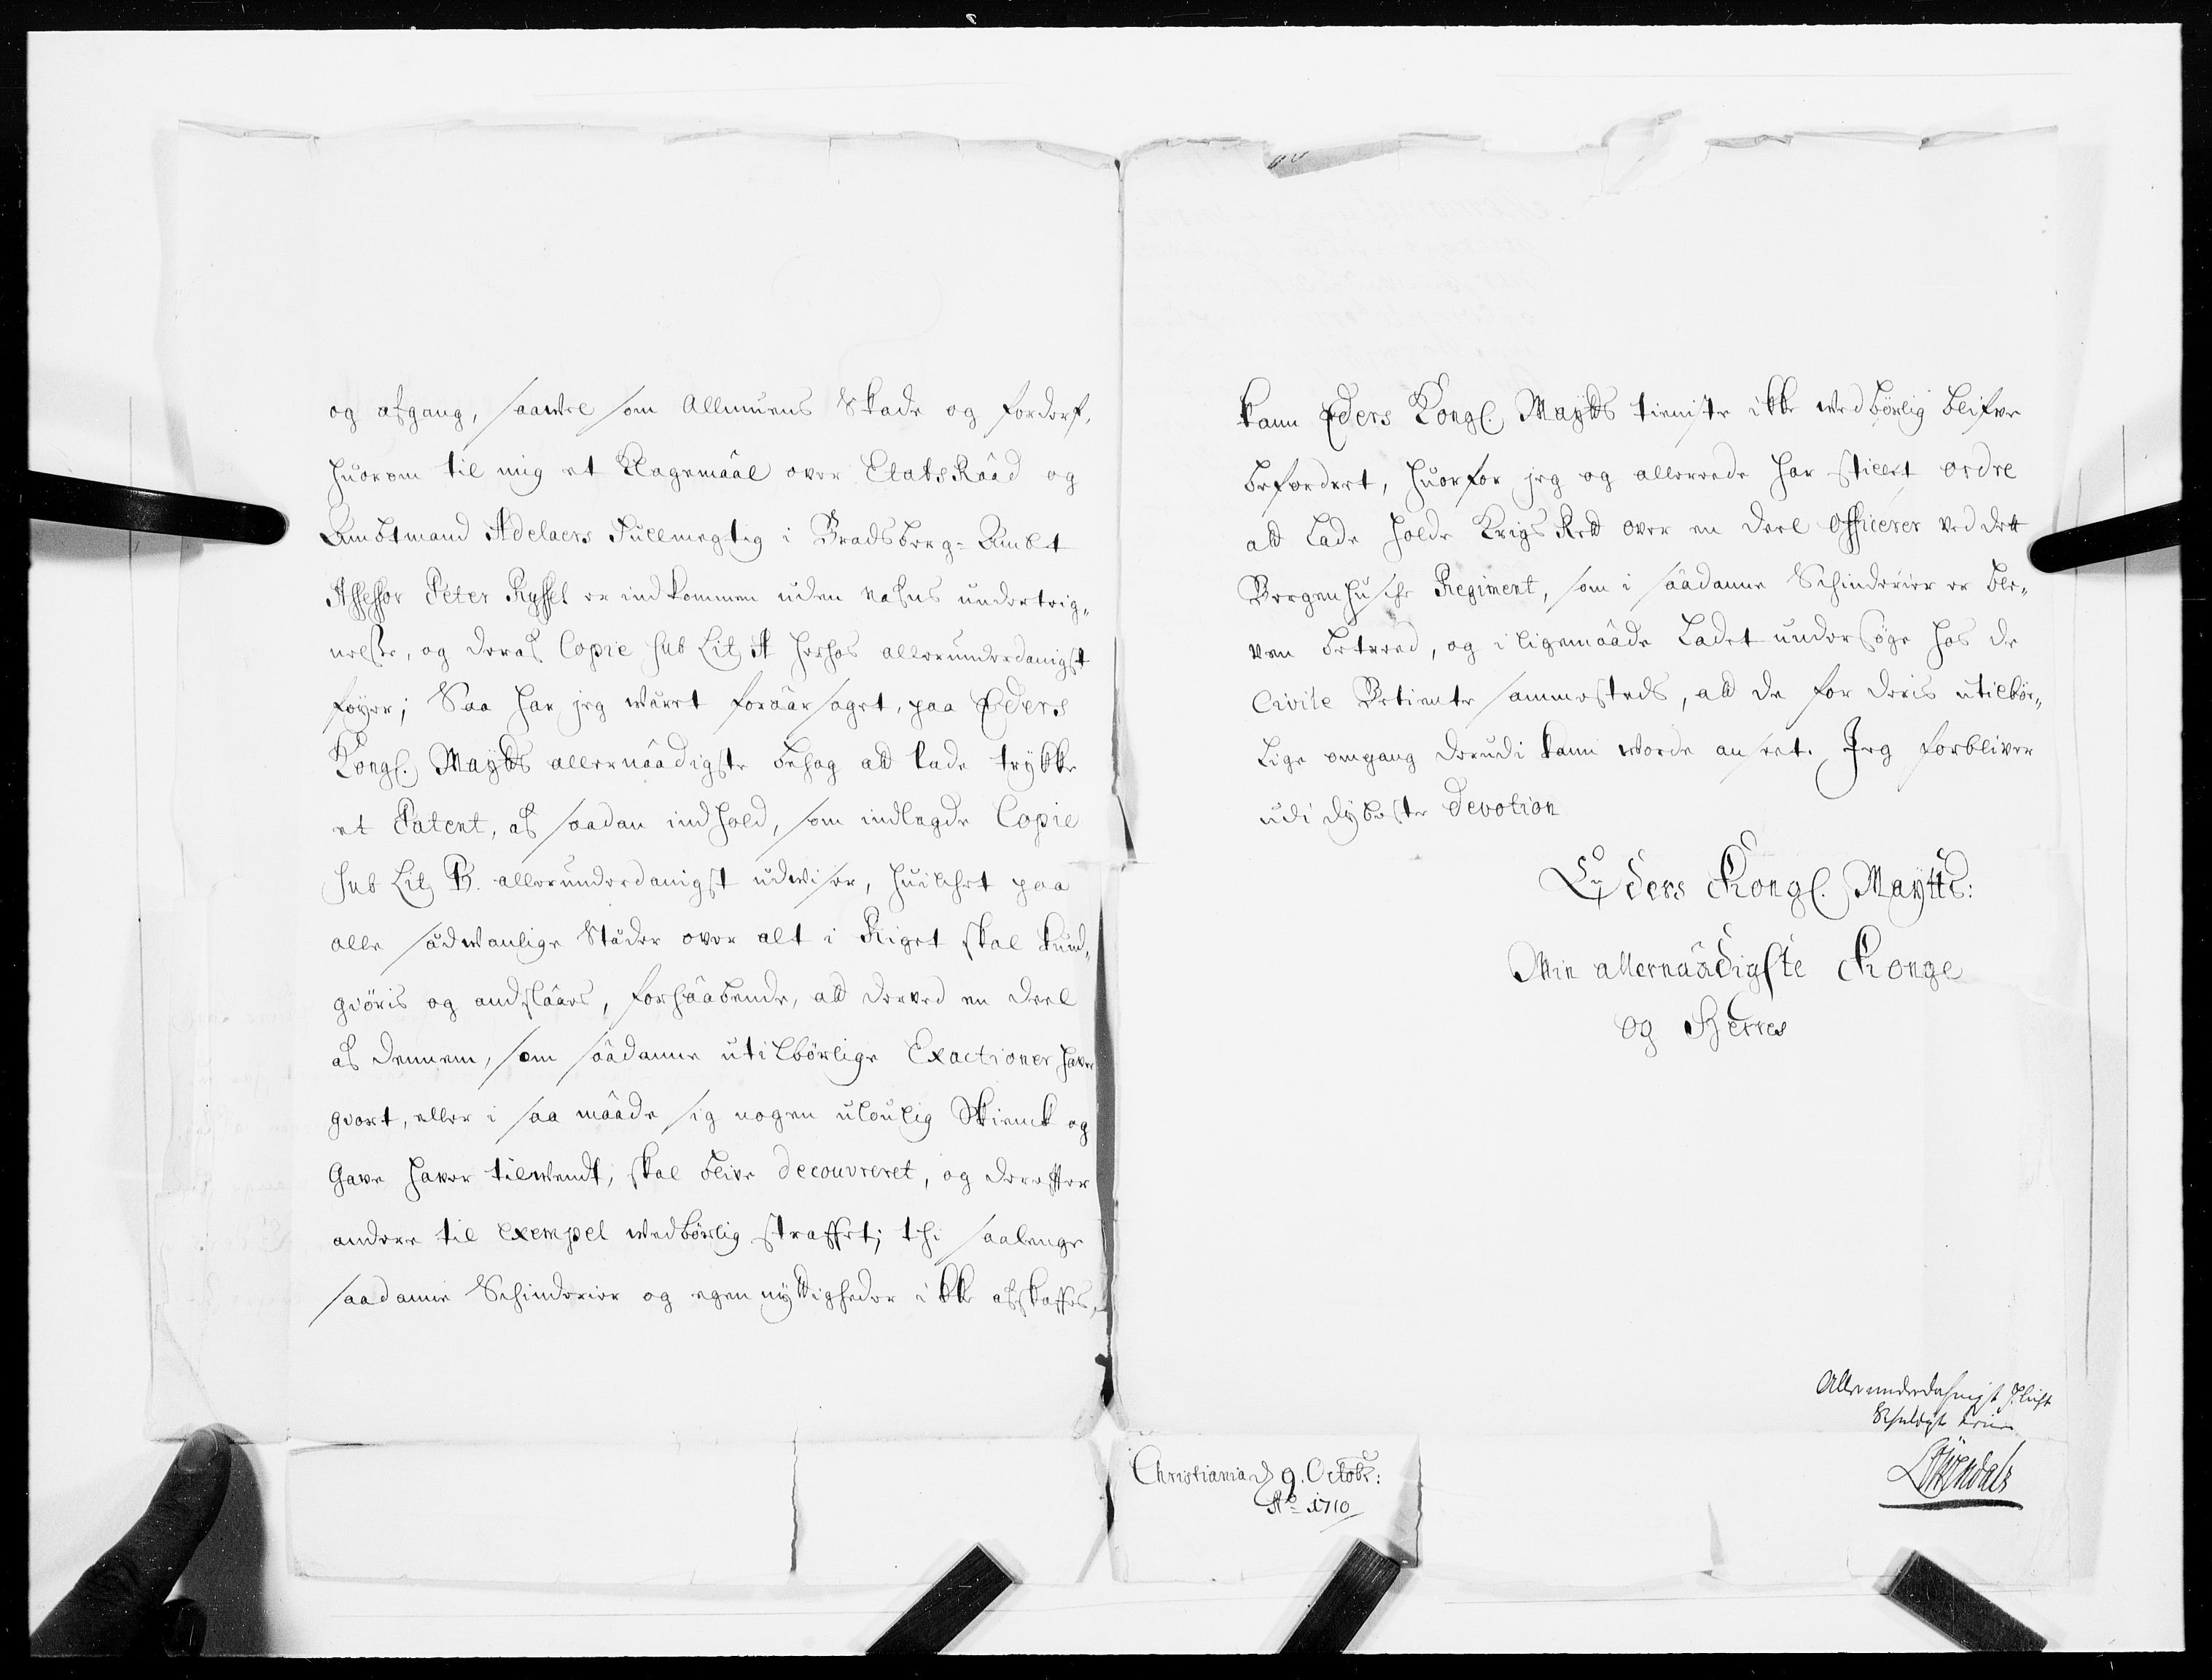 og afgang, saavel som Allmuens Skade og forderf,
huorom til mig et Klagemaal over Etats Raad og
Ambtmand Adelaers Fullmegtig i Bradsberg-Ambt
Assessor Peter Ryssel er indkommen uden nafns underteig„
nelse, og deraf Copie sub Lit A herhos allerunderdanigst
føyer; Saa har jeg været foraarsaget, paa Eders
Kongl. Maytts allernaadigste behag att lade trykke
et Patent, af saadan indhold, som indlagde Copie
sub Lit B. allerunderdanigst udviser, huilchet paa
alle sædvanlige Stæder over alt i Riget skal kund„
giøris og andslaaes, forhaabende, att derved en deel
af dennem, som saadanne utilbørlige Exactioner haver
giort, eller i saa maade sig nogen uloulig Skienck og
Gave haver tilwendt, skal blive decouvreret, og derefter
andere til exempel wedbørlig straffet; thi saalenge
saadanne Schinderier og egennyttigheder ikke afskaffes,
kann Eders Kongl. Maytts tieniste ikke wedbørlig blifve
befordert, huorfor jeg og allerrede har stillet ordre
att lade holde Krigs Rett over en deel Officerer ved dett
Bergenhusche Regiment, som i saadanne Schinderier er ble„
ven betreed, og i ligemaade ladet undersøge hos de
Civile Betiente sammesteds, att de for deris utilbør„
lige omgang derudi kann worde anseet. Jeg forbliver
udi dybeste devotion
Eyders Kongl. Maytts:
Min allernaadigste Konge
og Herres
Allerunderdahnigst Pligt
Schuldigste
Løvendals
Christiania d 9. Octobr:
Ao 1710